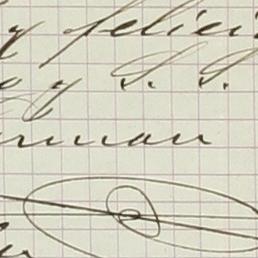 y felici
y S. S.
erman